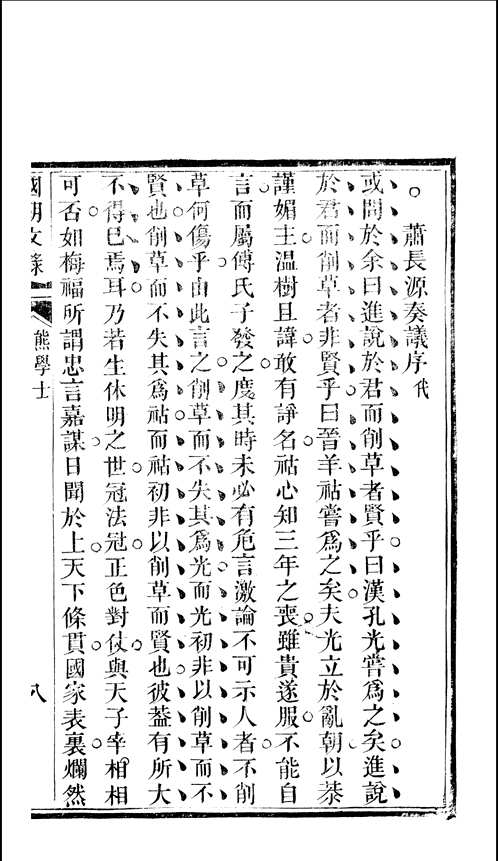 蕭長源奏議序代
或問於余曰進說於君而削草者賢乎曰漢孔光嘗爲之矣進說
於君而削草者非賢乎曰晉羊祜嘗爲之矣夫光立於亂朝以恭
謹媚主溫樹且諱敢有諍名祜心知三年之喪雖貴遂服不能自
言而屬傅氏子發之度其時未必有危言激論不可示人者不削
草何傷乎由此言之削草而不失其爲光而光初非以削草而不
賢也削草而不失其爲祜而祜初非以削草而賢也彼葢有所大
不得已焉耳乃若生休明之世冠法冠正色對仗與天子宰相相
可否如梅福所謂忠言嘉謀日聞於上天下條貫國家表裏爛然
國朝文彔 熊學士 八